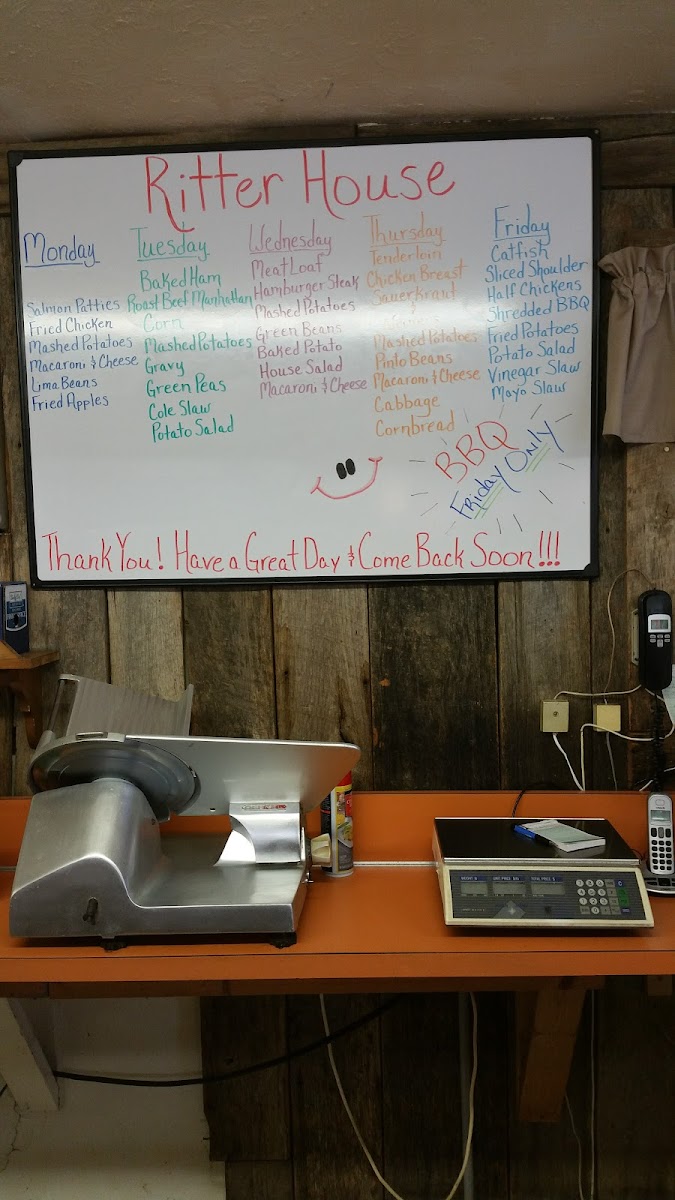 Ritter House
Monday
Salmon Patties
Fried Chicken
Mashed Potatoes
Macaroni & Cheese
Lima Beans
Fried Apples
Tuesday
Baked Ham
Roast Beef Manhattan
Corn
Mashed Potatoes
Gravy
Green Peas
Cole Slaw
Potato Salad
Wednesday
Meat Loaf
Hamburger Steak
Mashed Potatoes
Green Beans
Baked Potato
House Salad
Macaroni & Cheese
Thursday
Tenderloin
Chicken Breast
Sauerkraut
&
Mashed Potatoes
Pinto Beans
Macaroni & Cheese
Cabbage
Cornbread
Friday
Catfish
Sliced Shoulder
Half Chickens
Shredded BBQ
Fried Potatoes
Potato Salad
Vinegar Slaw
Mayo Slaw
BBQ
Friday Only
Thank You! Have a Great Day & Come Back Soon!!!